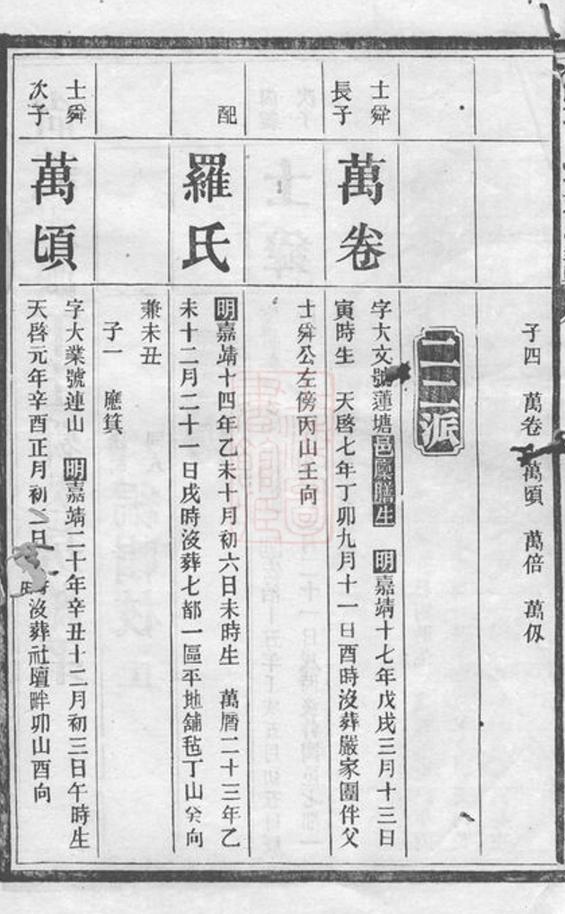 子四　萬卷　萬頃　萬倍　萬仭
派
士舜
長子
萬卷
字大文號蓮塘邑廩膳生　明嘉靖十七年戊戌三月十三日
寅時生　天啓七年丁卯九月十一日酉時沒葬嚴家園伴父
士舜公左傍丙山壬向
配
羅氏
明嘉靖十四年乙未十月初六日未時生　萬曆二十三年乙
未十二月二十一日戌時沒葬七都一區平地舖毡丁山癸向
兼未丑
子一　應箕
士舜
次子
萬頃
字大業號連山　明嘉靖二十年辛丑十二月初三日午時生
天啓元年辛酉正月初二日　時沒葬社壇畔卯山酉向